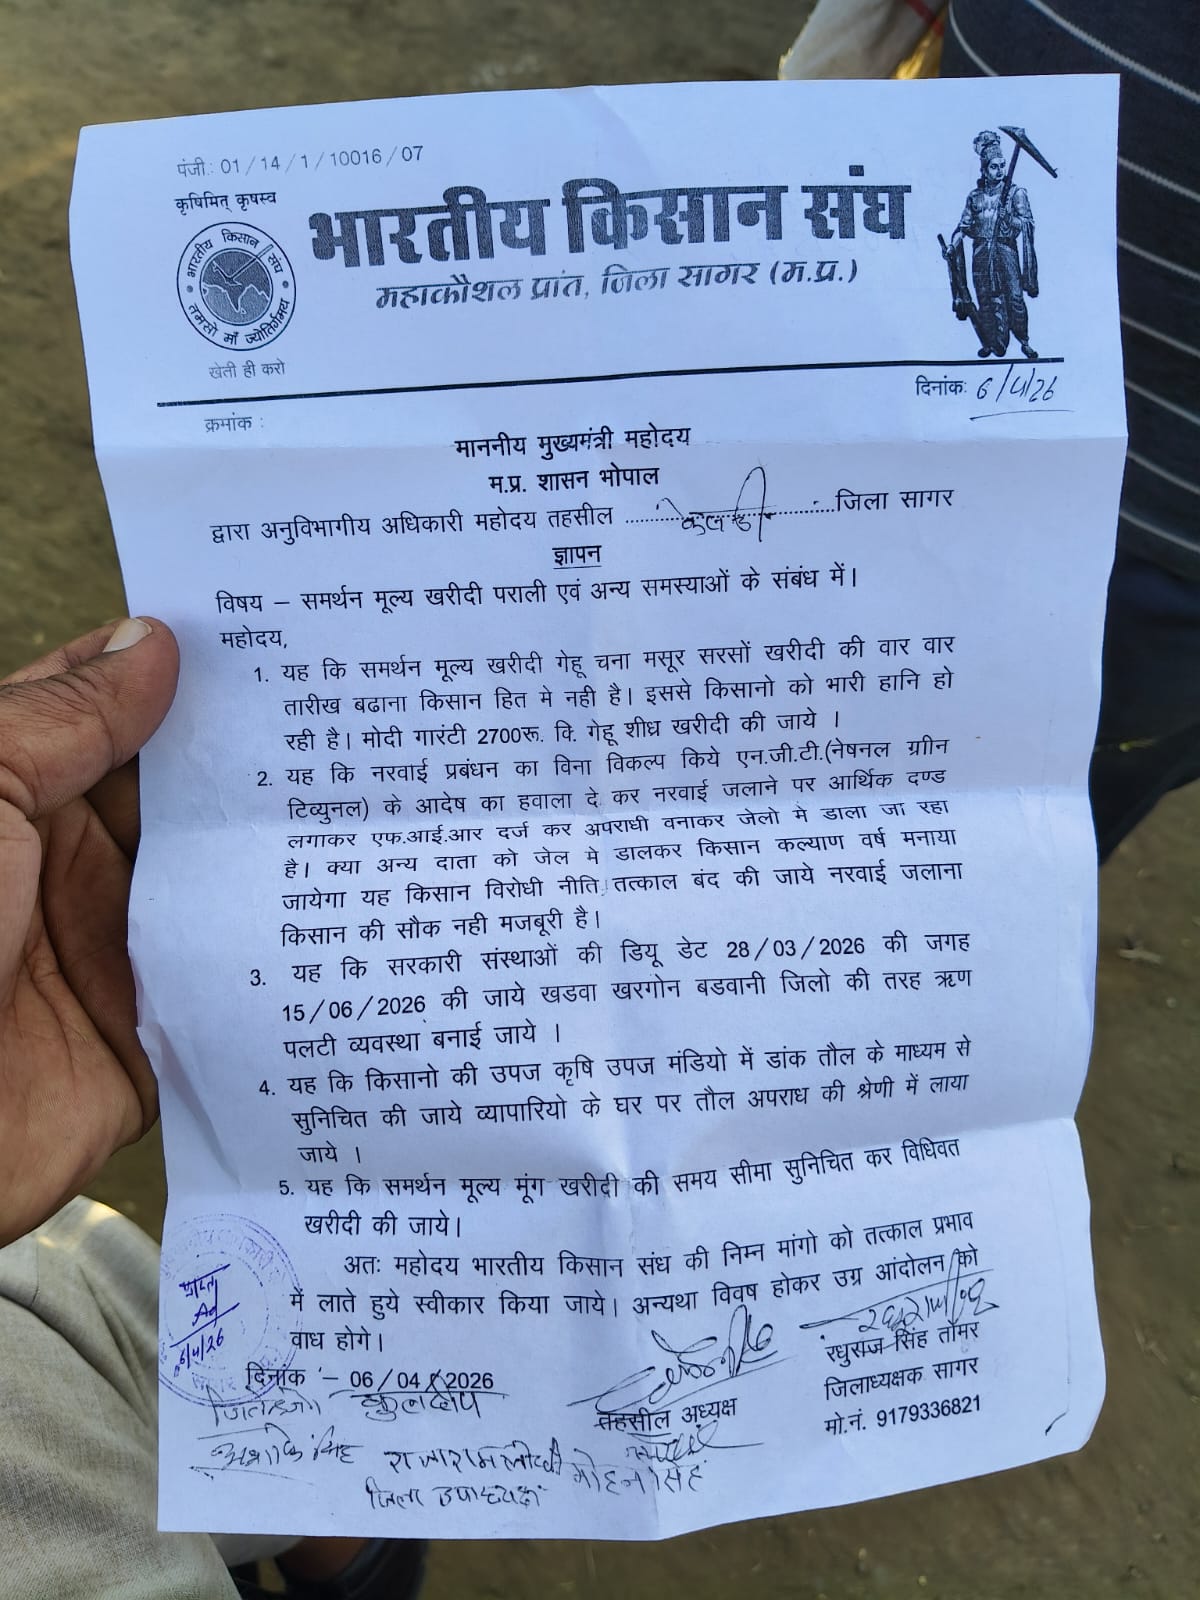 पंजी.: 01/14/1/10016/07
कृषिमित् कृषस्व
भारतीय किसान संघ
भारतीय किसान संघ
तमसो माँ ज्योतिर्गमय
महाकौशल प्रांत, जिला सागर (म.प्र.)
खेती ही करो
दिनांक: 6/4/26
क्रमांक :
माननीय मुख्यमंत्री महोदय
म.प्र. शासन भोपाल
द्वारा अनुविभागीय अधिकारी महोदय तहसील .................... जिला सागर
ज्ञापन
विषय – समर्थन मूल्य खरीदी पराली एवं अन्य समस्याओं के संबंध में।
महोदय,
1. यह कि समर्थन मूल्य खरीदी गेहू चना मसूर सरसों खरीदी की वार वार
तारीख बढाना किसान हित मे नही है। इससे किसानो को भारी हानि हो
रही है। मोदी गारंटी 2700रू. वि. गेहू शीध्र खरीदी की जाये ।
2. यह कि नरवाई प्रबंधन का विना विकल्प किये एन.जी.टी.(नेषनल ग्रीन
टिव्युनल) के आदेष का हवाला दे कर नरवाई जलाने पर आर्थिक दण्ड
लगाकर एफ.आई.आर दर्ज कर अपराधी वनाकर जेलो मे डाला जा रहा
है। क्या अन्य दाता को जेल मे डालकर किसान कल्याण वर्ष मनाया
जायेगा यह किसान विरोधी नीति तत्काल बंद की जाये नरवाई जलाना
किसान की सौक नही मजबूरी है।
3. यह कि सरकारी संस्थाओं की डियू डेट 28/03/2026 की जगह
15/06/2026 की जाये खडवा खरगोन बडवानी जिलो की तरह ऋण
पलटी व्यवस्था बनाई जाये ।
4. यह कि किसानो की उपज कृषि उपज मंडियो में डांक तौल के माध्यम से
सुनिचित की जाये व्यापारियो के घर पर तौल अपराध की श्रेणी में लाया
जाये ।
5. यह कि समर्थन मूल्य मूंग खरीदी की समय सीमा सुनिचित कर विधिवत
खरीदी की जाये।
अतः महोदय भारतीय किसान संध की निम्न मांगो को तत्काल प्रभाव
में लाते हुये स्वीकार किया जाये। अन्यथा विवष होकर उग्र आंदोलन को
वाध होगे।
6/4/26
दिनांक – 06/04/2026
रधुराज सिंह तोमर
जिलाध्यक्षक सागर
मो.नं. 9179336821
तहसील अध्यक्ष
कुलदीप
मोहन सिंह
जिला उपाध्यक्ष